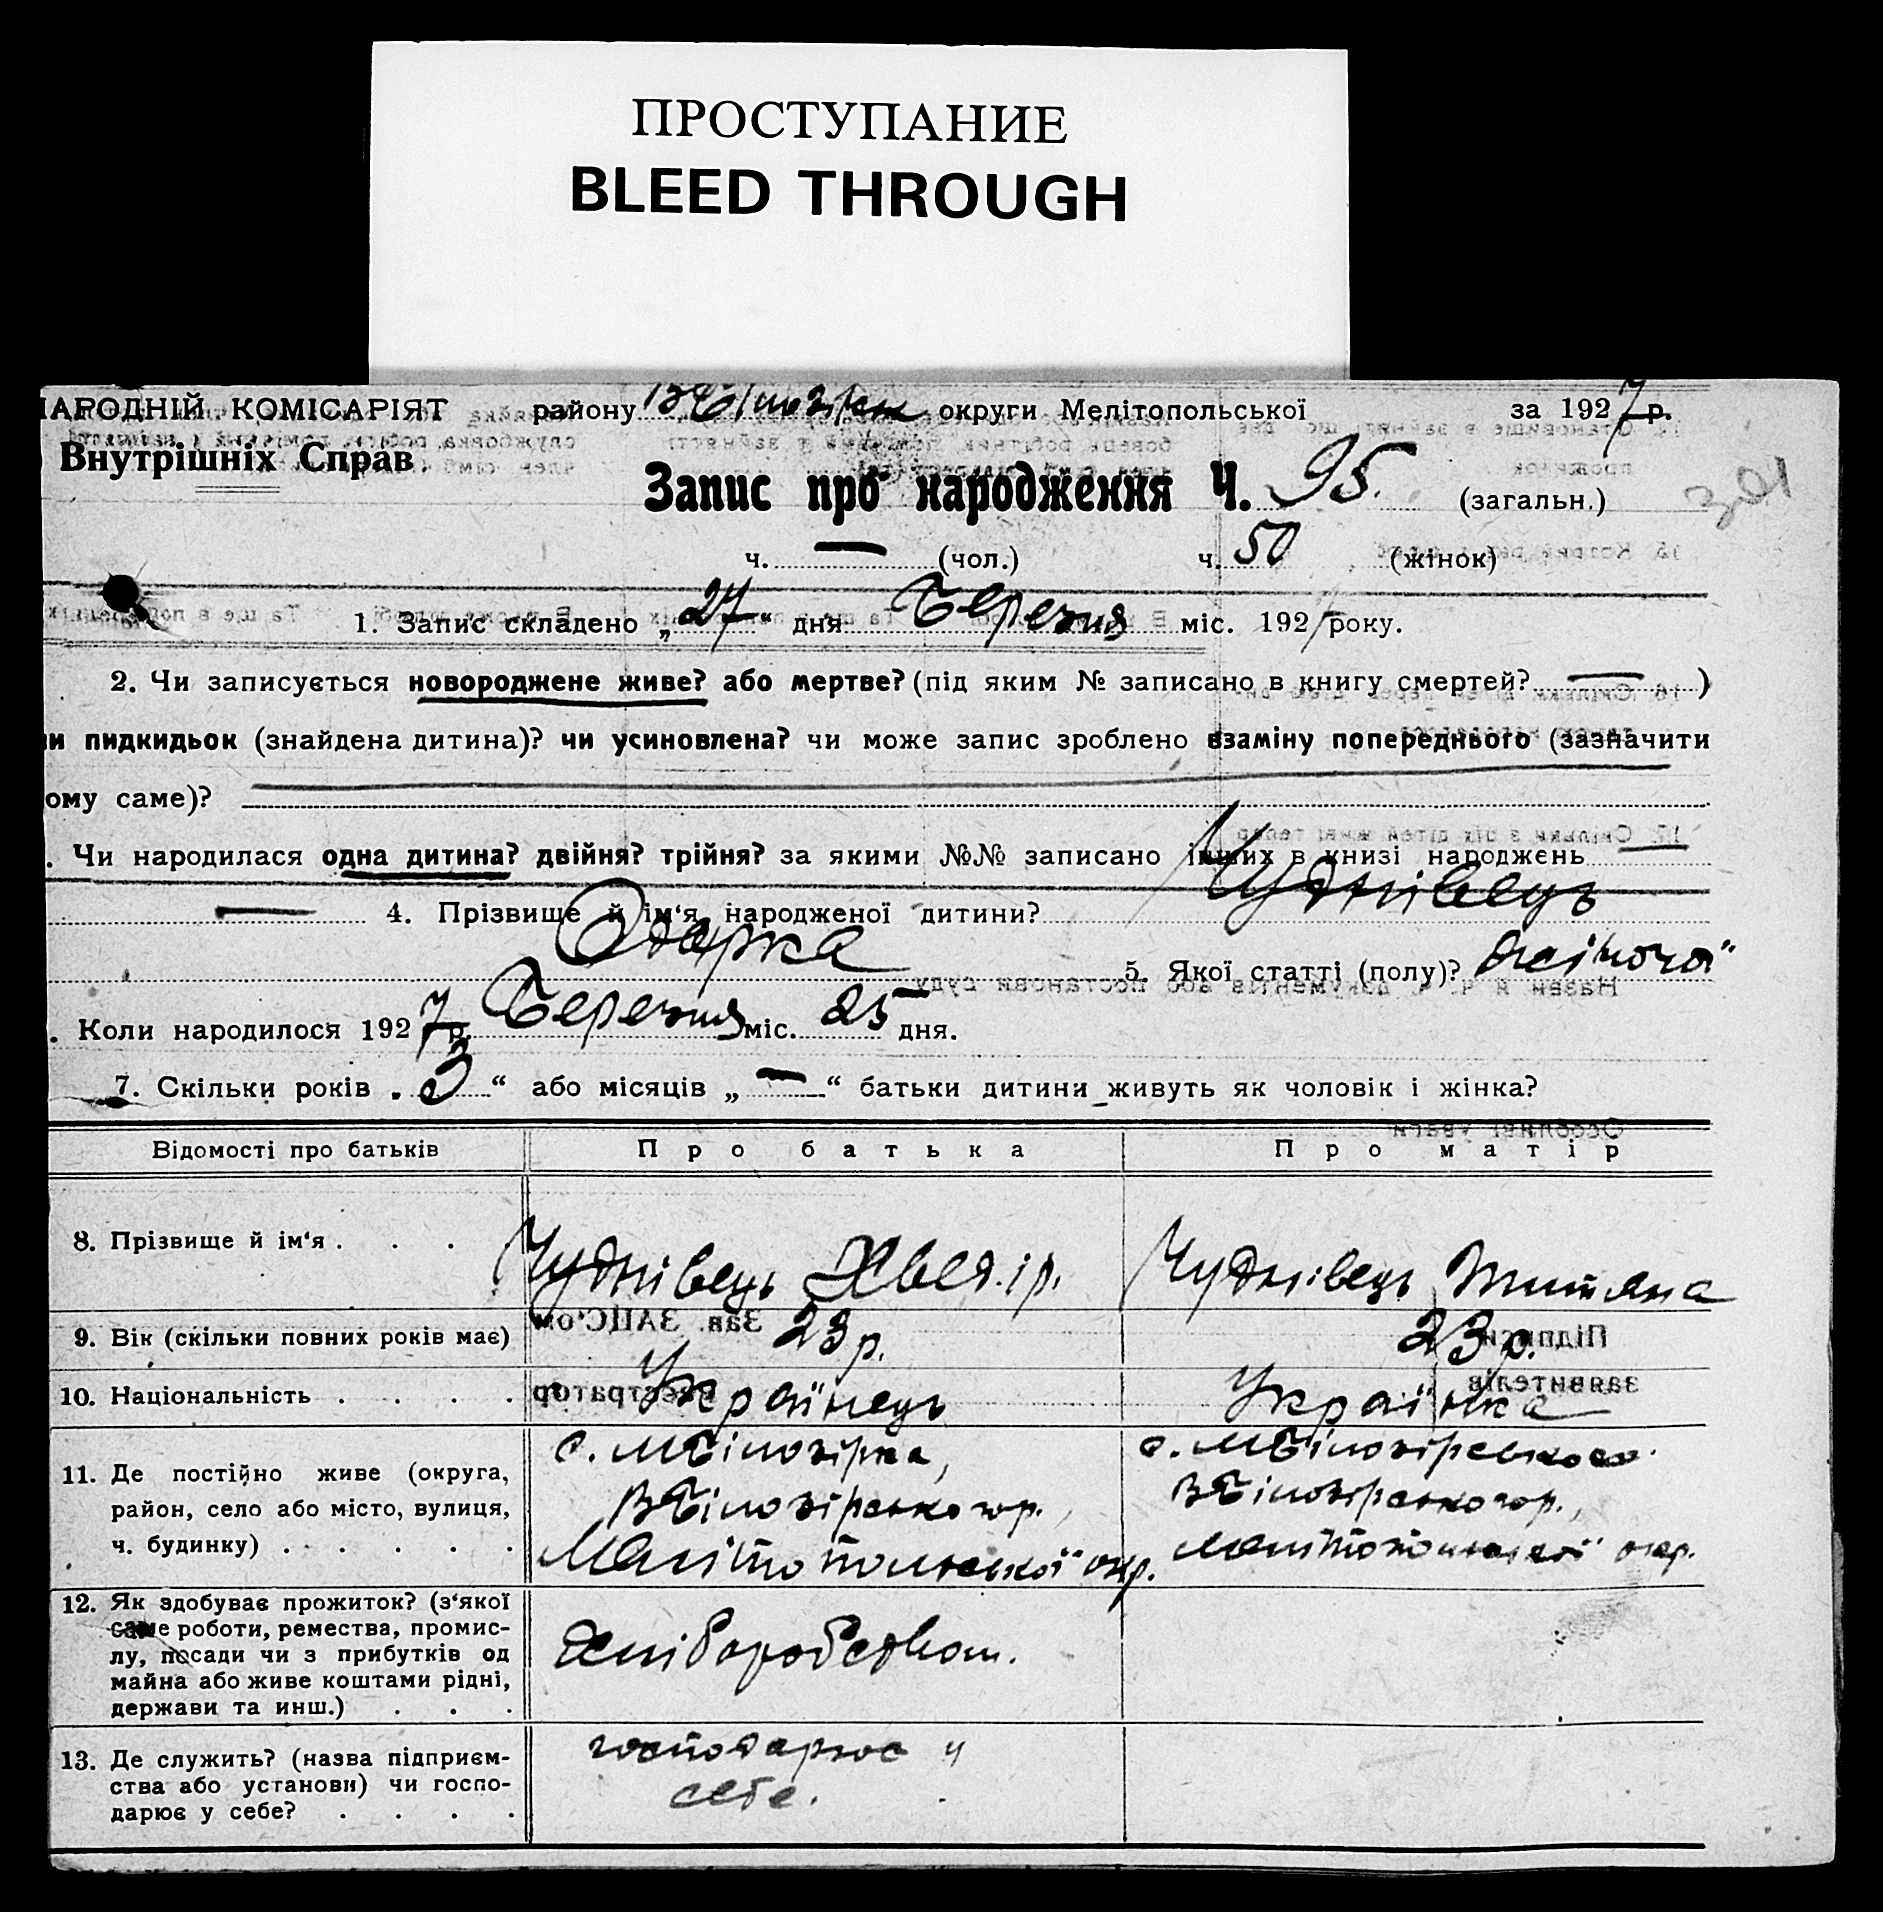 ПРОСТУПАНИЕ
BLEED THROUGH
НАРОДНІЙ КОМІСАРІЯТ району округи Мелітопольської за 1927 р.
Внутрішніх Справ
Запис про народження Ч. 95. (загальн.)
ч. — (чол.) ч. 50 (жінок)
1. Запис складено „27“ дня Березня міс. 1927 року.
2. Чи записується новороджене живе? або мертве? (під яким № записано в книгу смертей? — )
чи пидкидьок (знайдена дитина)? чи усиновлена? чи може запис зроблено взаміну попереднього (зазначити
ому саме)?
. Чи народилася одна дитина? двійня? трійня? за якими №№ записано інших в книзі народжень
— 4. Прізвище й ім‘я народженої дитини? Чуднівець
Одарка 5. Якої статті (полу)? жіночої
. Коли народилося 1927 р. Березня міс. 25 дня.
7. Скільки років „3“ або місяців „—“ батьки дитини живуть як чоловік і жінка?
Відомості про батьків Про батька Про матір
8. Прізвище й ім‘я . . . . Чуднівець Хведір. Чуднівець Титяна
9. Вік (скільки повних років має) 23 р. 23 р.
10. Національність . . . . Українець Українка
11. Де постійно живе (округа, с. МБілозірка, с. МБілозірського
район, село або місто, вулиця, ВБілозірського р., ВБілозірського р.,
ч. будинку) . . . . . Мелітопольської окр. Мелітопольської окр.
12. Як здобуває прожиток? (з‘якої
саме роботи, ремества, промис-
лу, посади чи з прибутків од Хліборобством.
майна або живе коштами рідні,
держави та инш.) . . .
13. Де служить? (назва підприєм- господарює у
ства або установи) чи госпо- себе.
дарює у себе? . . . .